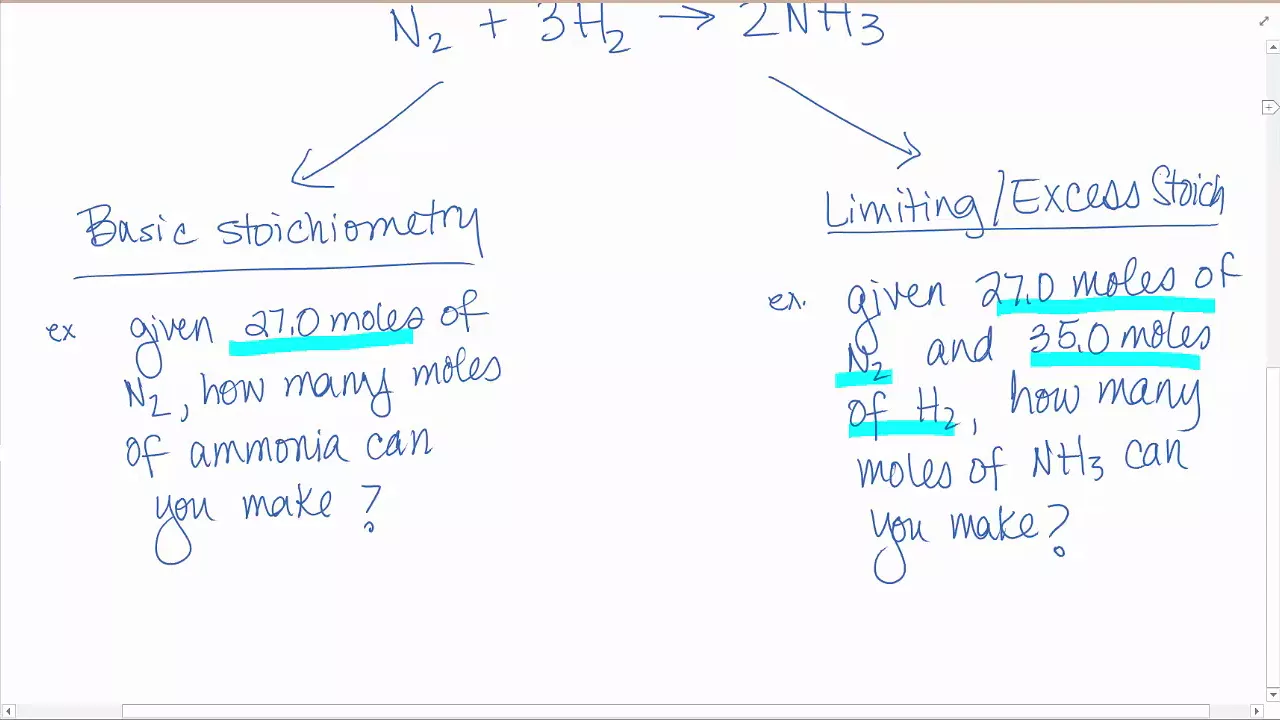 N₂ + 3H₂ → 2NH₃
Basic stoichiometry
ex given 27.0 moles of
N₂, how many moles
of ammonia can
you make?
Limiting/Excess Stoich
ex. given 27.0 moles of
N₂ and 35.0 moles
of H₂, how many
moles of NH₃ can
you make?